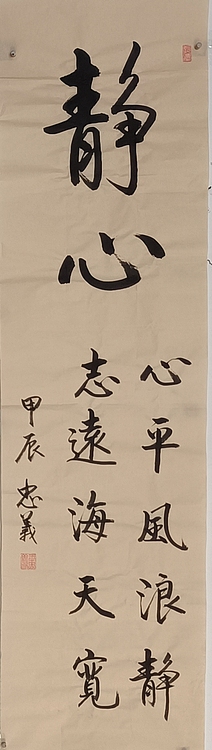 静心
心平風浪靜
志遠海天寬
甲辰 忠義